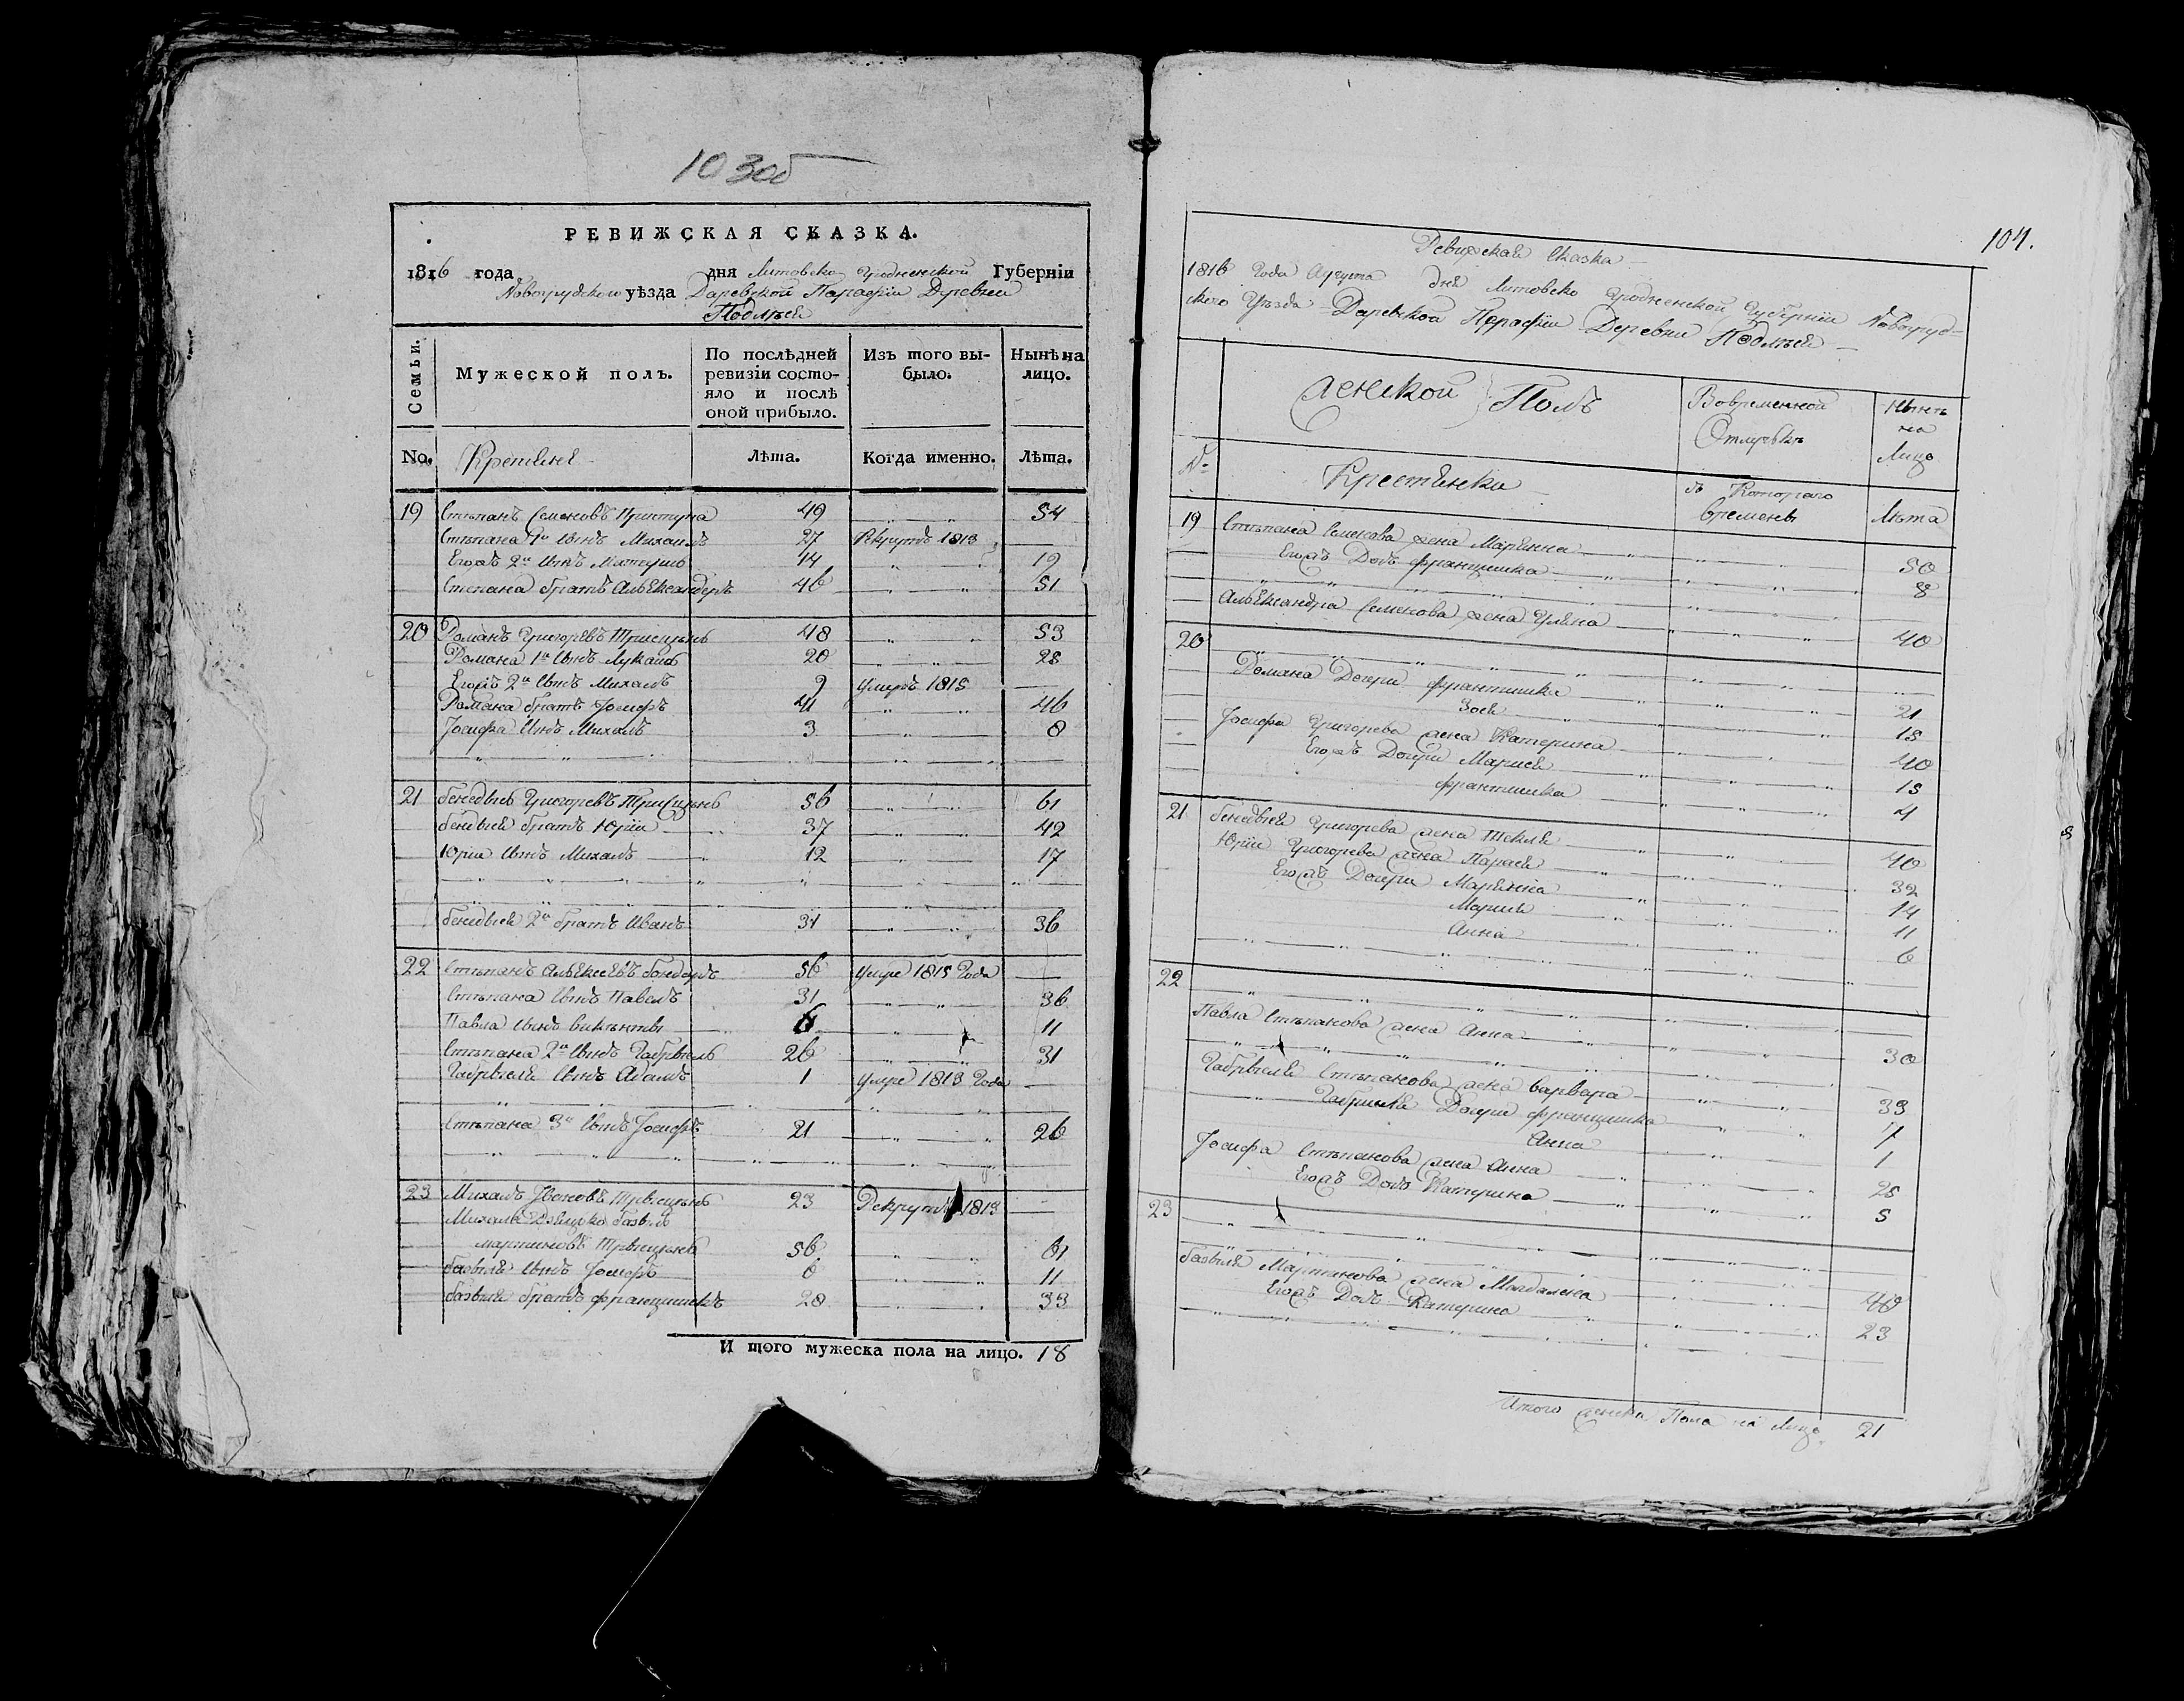 103об
РЕВИЖСКАЯ СКАЗКА.
1816 года дня Литовско Гродненской Губерніи
Новогрудского уѣзда Даревской Парафіи Деревни
Подлѣсей
Семьи. Мужеской полъ. По послѣдней ревизіи состояло и послѣ оной прибыло. Изъ того выбыло. Нынѣ на лицо.
No. Лѣта. Когда именно. Лѣта.
19 Стѣпанъ Семеновъ 49 54
Стѣпана 1й Сынъ Михалъ 27 Рекрутъ 1813
Егожъ 2й Сынъ Матеушъ 14 19
Степана братъ Альександеръ 46 51
20 Романъ Григоревъ 48 53
Романа 1й Сынъ Лукашъ 20 25
Егожъ 2й Сынъ Михалъ 9 Умеръ 1815
Романа братъ Іосифъ 41 46
Іосифа Сынъ Михалъ 3 8
21 Григоревъ 56 61
братъ Юрій 37 42
Юрія Сынъ Михалъ 12 17
2й братъ Иванъ 31 36
22 Стѣпанъ Альексеевъ бондаръ 56 Умре 1815 Года
Стѣпана Сынъ Павелъ 31 36
Павла Сынъ Викѣнты 6 11
Стѣпана 2й Сынъ Габрыель 26 31
Габрыеля Сынъ Адамъ 1 Умре 1813 Года
Стѣпана 3й Сынъ Іосифъ 21 26
23 Михалъ Ивановъ 23 Рекрутъ 1813
Михала Дзядзко базыль
Мартиновъ 56 61
базыля Сынъ Іосифъ 6 11
базыля братъ Францишекъ 28 33
И того мужеска пола на лицо. 18
104.
Ревижская Сказка
1816 Года Августа дня Литовско Гродненской Губерніи Новогруд=
ского Уѣзда Даревской Парафіи Деревни Подлѣсей
Женской Полъ Вовременной Отлучкѣ Нынѣ на Лицо
№ Крестянки съ Котораго Времены Лѣта
19 Стѣпана Семенова жена Марьянна 50
Егожъ Дочь Францишка 8
Альександра Семенова жена Уляна 40
20
Романа Дочери Францишка 21
Зося 15
Іосифа Григорева жена Катерина 40
Егожъ Дочери Марися 15
Францишка 4
21 Григорева жена Текля 40
Юрія Григорева жена Парася 32
Егожъ Дочери Марьянна 14
Марися 11
Анна 6
22
Павла Стѣпанова жена Анна 30
Габрыеля Стѣпанова жена Варвара 33
Габрыеля Дочери Францишка 7
Анна 1
Іосифа Стѣпанова жена Анна 25
Егожъ Дочь Катерина 5
23
базыля Мартинова жена Магдалена 40
Егожъ Дочь Катерина 23
Итого женска Пола на Лицо 21